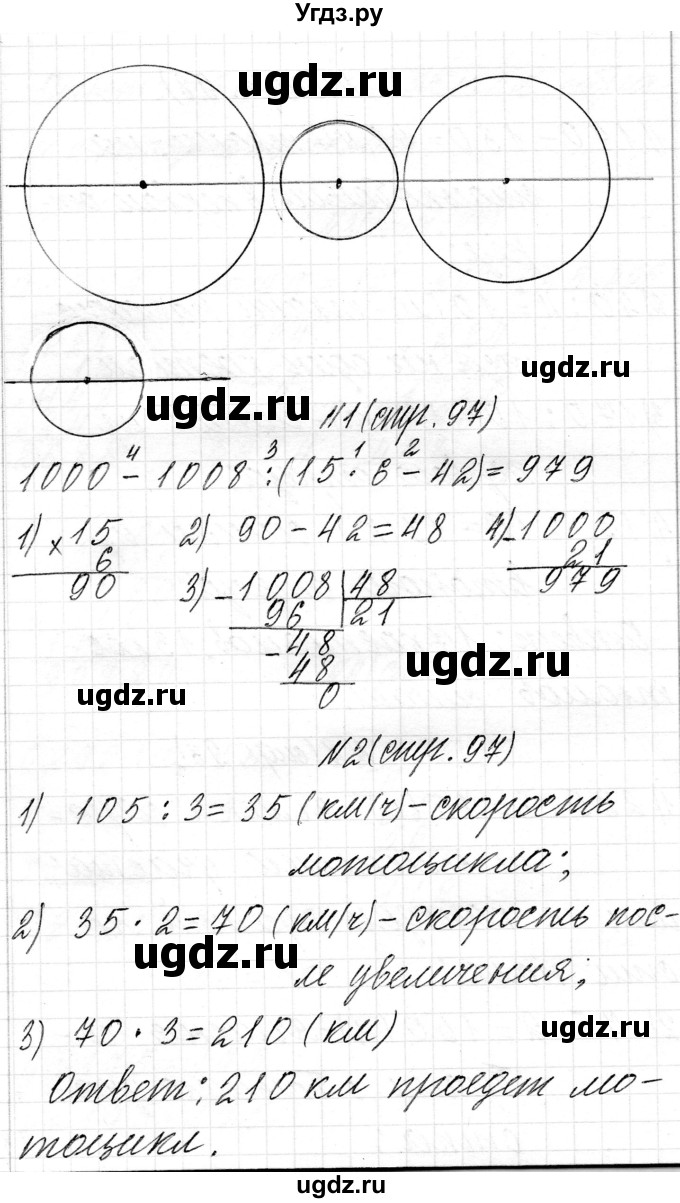 Угдз.ру
ugdz.ru
ugdz.ru
ugdz.ru
N1 (стр. 97)
4 3 1 2
1000 - 1008 : (15 · 6 - 42) = 979
1) × 15 2) 90 - 42 = 48 4) - 1000
6 21
90 979
3) - 1008 48
96 21
- 48
48
0
ugdz.ru
ugdz.ru
N2 (стр. 97)
1) 105 : 3 = 35 (км/ч) - скорость
мотоцикла;
2) 35 · 2 = 70 (км/ч) - скорость пос-
ле увеличения;
ugdz.ru
3) 70 · 3 = 210 (км)
ugdz.ru
Ответ: 210 км проедет мо-
тоцикл.
ugdz.ru